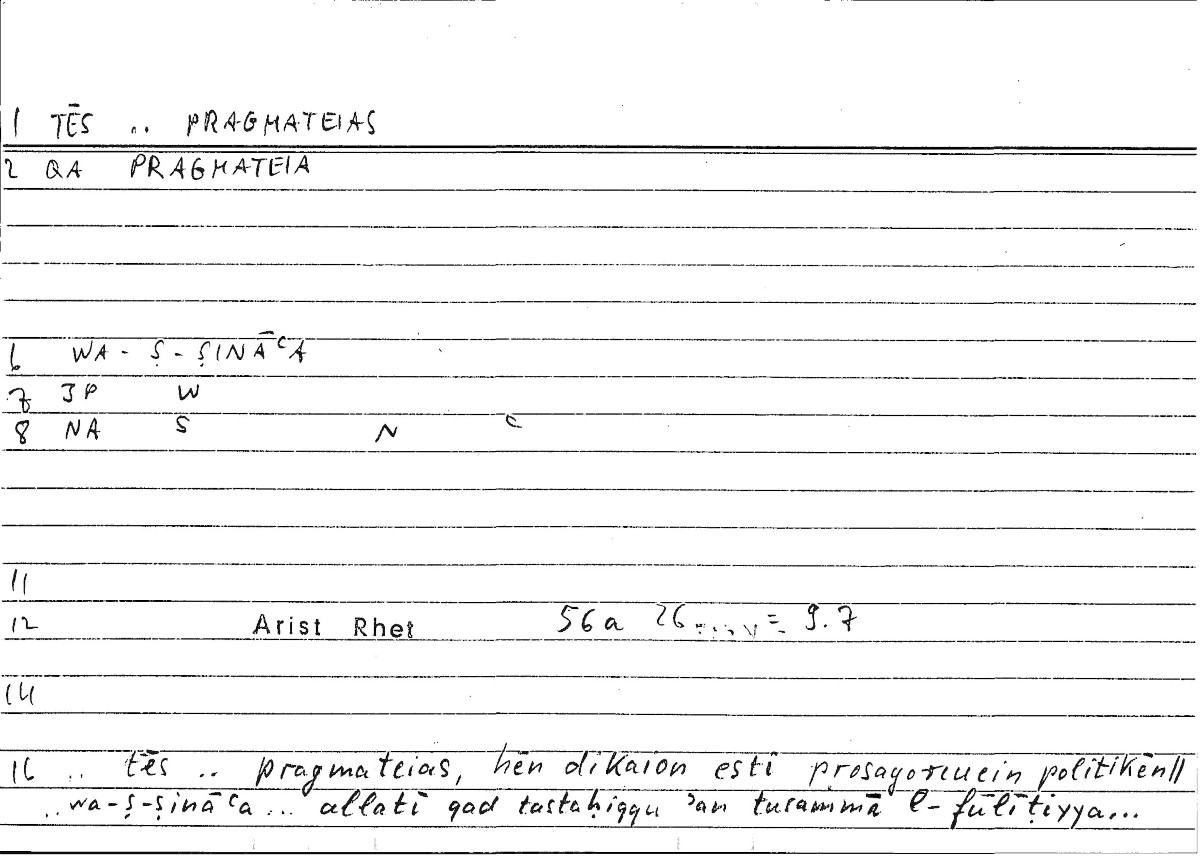 1 TĒS .. PRAGMATEIAS
2 QA PRAGMATEIA
6 WA-Ṣ-ṢINĀʿA
7 JP W
8 NA S N ʿ
11
12 Arist Rhet 56a 26 = 9.7
14
16 .. tēs .. pragmateias, hēn dikaion esti prosagoreuein politikēn//
..wa-ṣ-ṣināʿa... allatī qad tastaḥiqqu ʾan tusammā l-fūlīṭiyya...